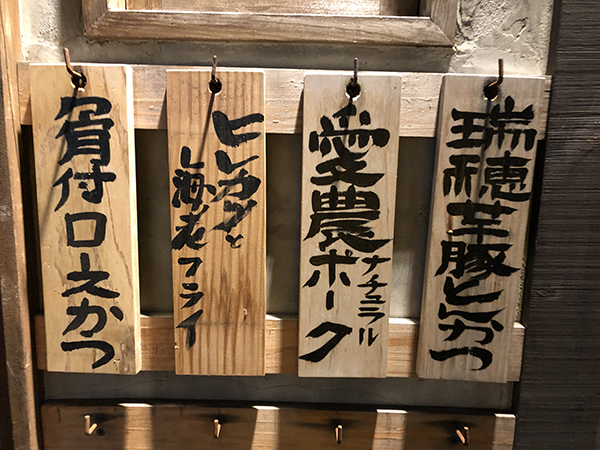 瑞穂芋豚とんかつ
愛農ナチュラル
ポーク
ヒレカツと
海老フライ
骨付ロースかつ